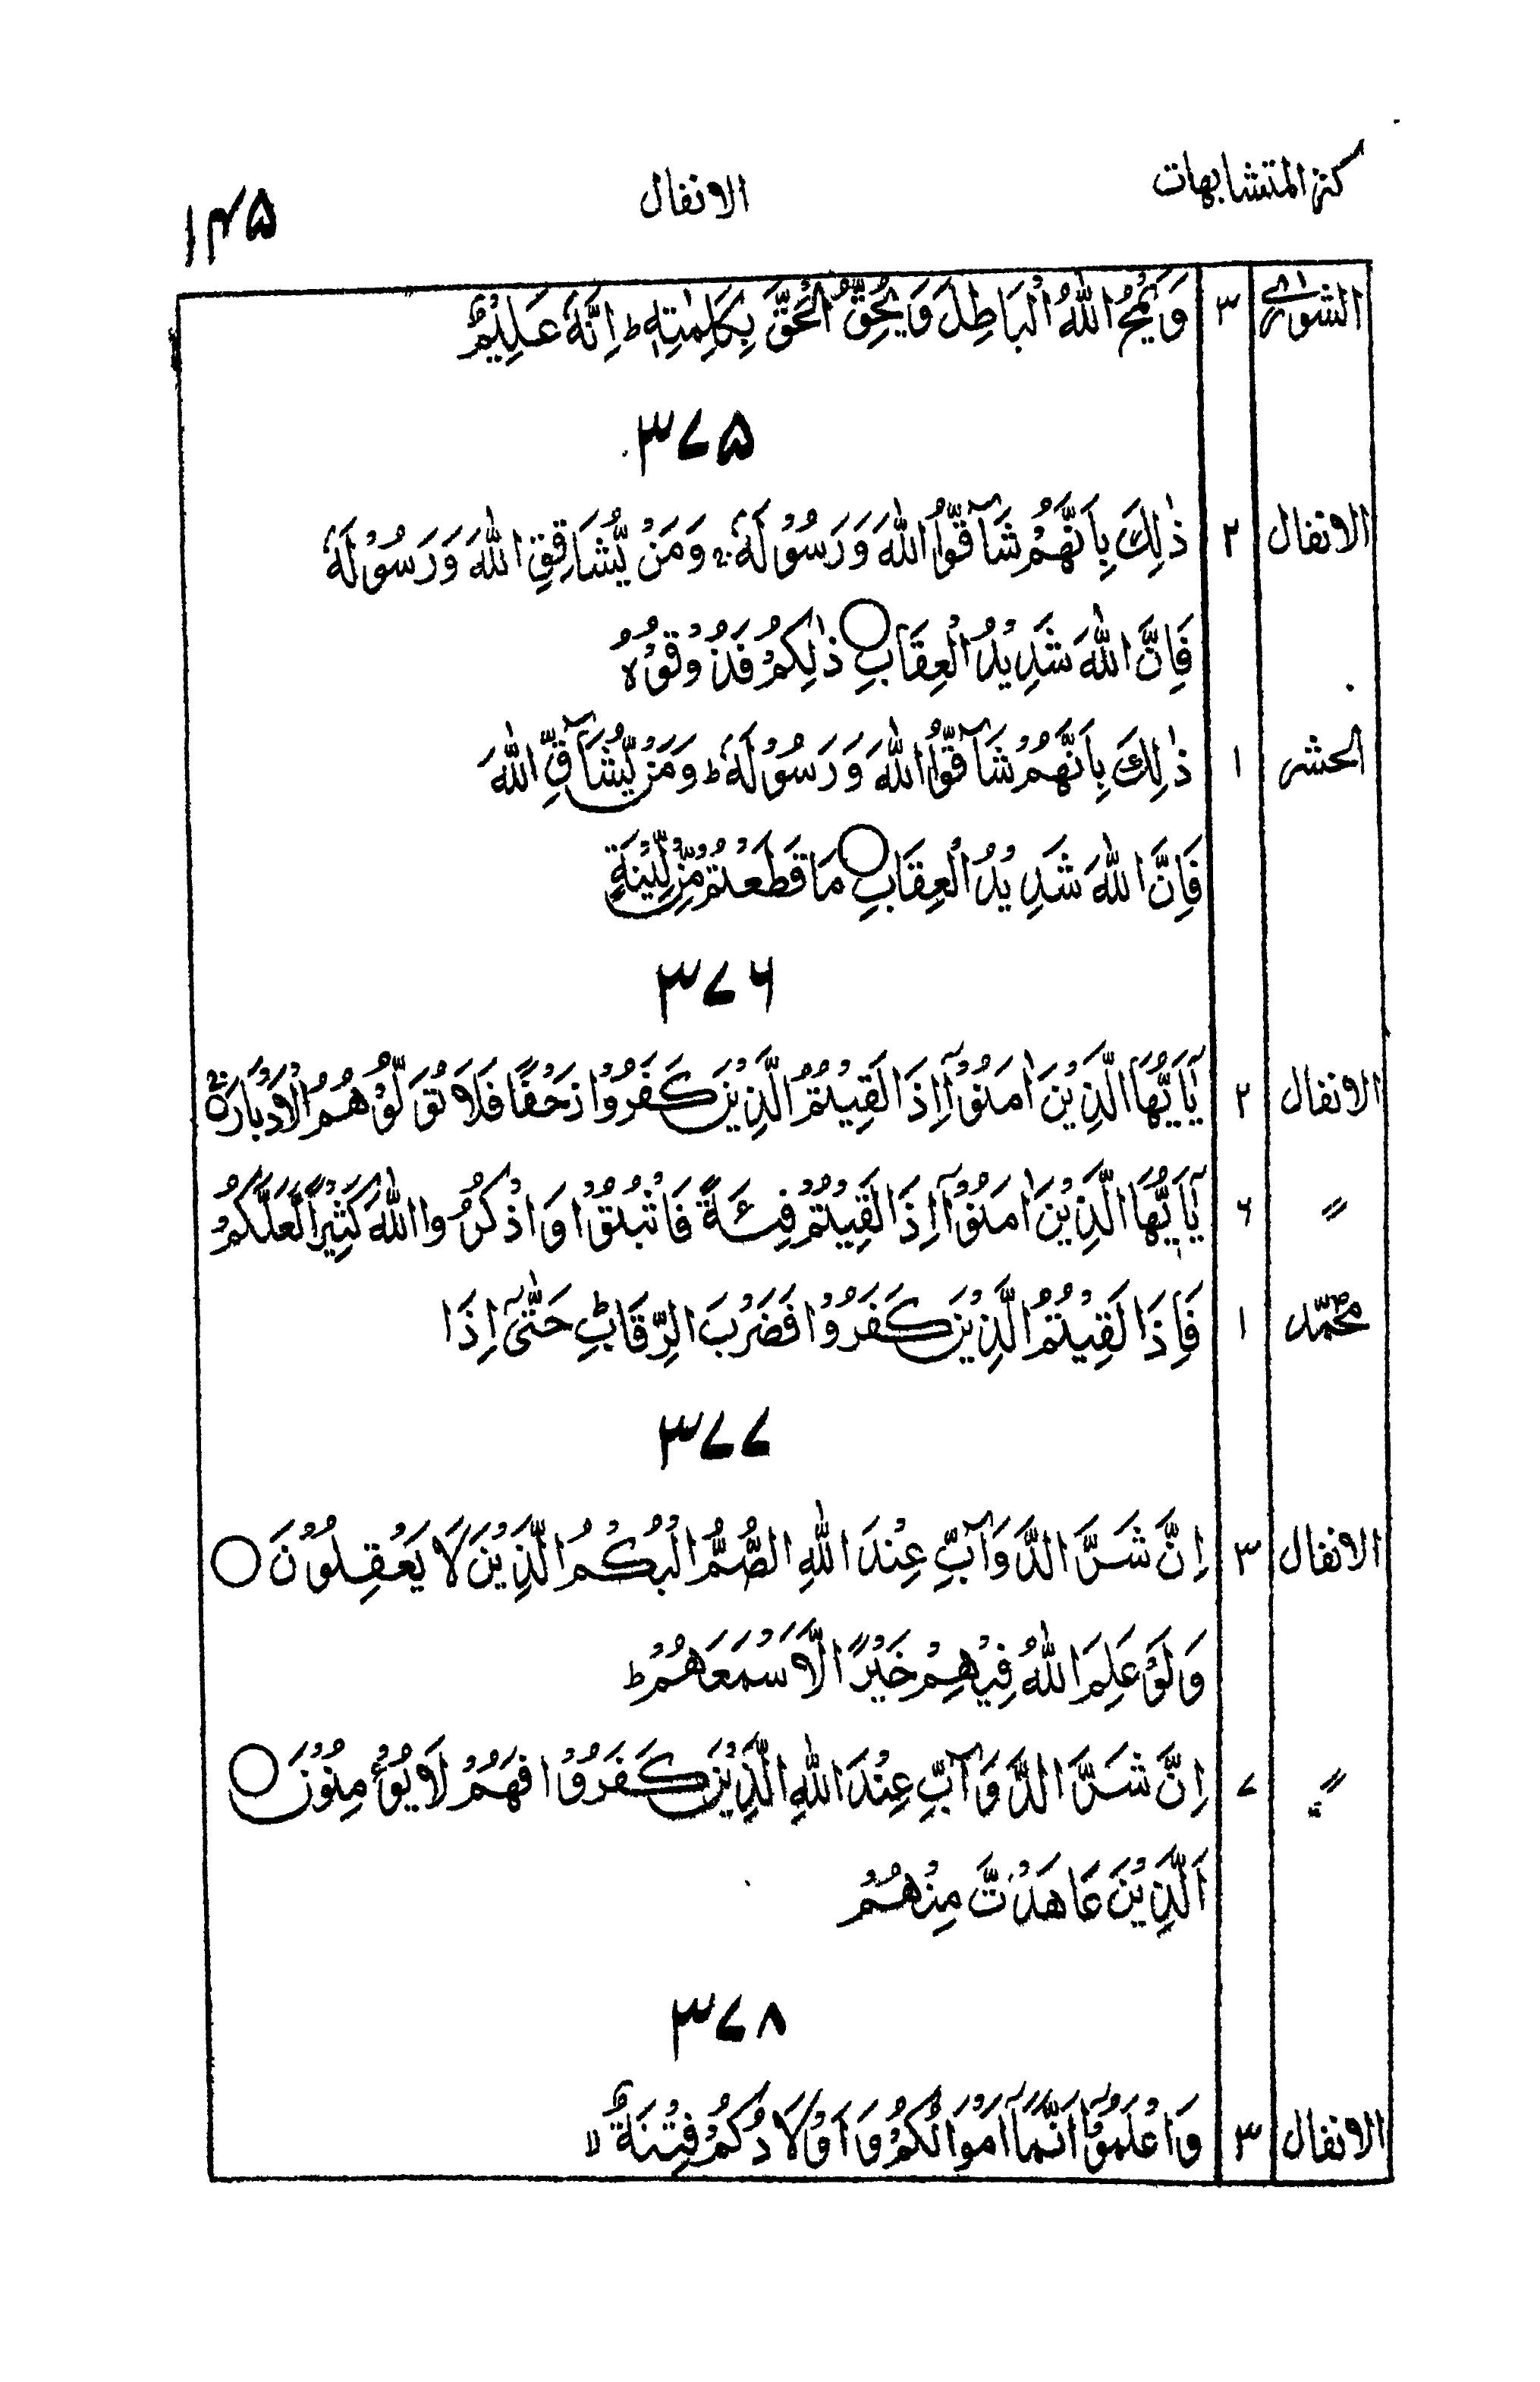 كنز المتشابهات الانفال ۱۴۵
الشورٰى ۳ وَيَمْحُ اللّٰهُ الْبَاطِلَ وَيُحِقُّ الْحَقَّ بِكَلِمٰتِهٖ ؕ اِنَّهٗ عَلِيْمٌۢ
۳۷۵
الانفال ۲ ذٰلِكَ بِاَنَّهُمْ شَآقُّوا اللّٰهَ وَرَسُوْلَهٗ ۚ وَمَنْ يُّشَاقِقِ اللّٰهَ وَرَسُوْلَهٗ
فَاِنَّ اللّٰهَ شَدِيْدُ الْعِقَابِ ○ ذٰلِكُمْ فَذُوْقُوْهُ
الحشر ۱ ذٰلِكَ بِاَنَّهُمْ شَآقُّوا اللّٰهَ وَرَسُوْلَهٗ ؕ وَمَنْ يُّشَآقِّ اللّٰهَ
فَاِنَّ اللّٰهَ شَدِيْدُ الْعِقَابِ ○ مَا قَطَعْتُمْ مِّنْ لِّيْنَةٍ
۳۷۶
الانفال ۲ يٰۤاَيُّهَا الَّذِيْنَ اٰمَنُوْۤا اِذَا لَقِيْتُمُ الَّذِيْنَ كَفَرُوْا زَحْفًا فَلَا تُوَلُّوْهُمُ الْاَدْبَارَ ۚ
〃 ۶ يٰۤاَيُّهَا الَّذِيْنَ اٰمَنُوْۤا اِذَا لَقِيْتُمْ فِئَةً فَاثْبُتُوْا وَاذْكُرُوا اللّٰهَ كَثِيْرًا لَّعَلَّكُمْ
محمّد ۱ فَاِذَا لَقِيْتُمُ الَّذِيْنَ كَفَرُوْا فَضَرْبَ الرِّقَابِ ؕ حَتّٰىۤ اِذَا
۳۷۷
الانفال ۳ اِنَّ شَرَّ الدَّوَآبِّ عِنْدَ اللّٰهِ الصُّمُّ الْبُكْمُ الَّذِيْنَ لَا يَعْقِلُوْنَ ○
وَلَوْ عَلِمَ اللّٰهُ فِيْهِمْ خَيْرًا لَّاَسْمَعَهُمْ ؕ
〃 ۷ اِنَّ شَرَّ الدَّوَآبِّ عِنْدَ اللّٰهِ الَّذِيْنَ كَفَرُوْا فَهُمْ لَا يُؤْمِنُوْنَ ○
اَلَّذِيْنَ عَاهَدْتَّ مِنْهُمْ
۳۷۸
الانفال ۳ وَاعْلَمُوْۤا اَنَّمَاۤ اَمْوَالُكُمْ وَاَوْلَادُكُمْ فِتْنَةٌ ۙ